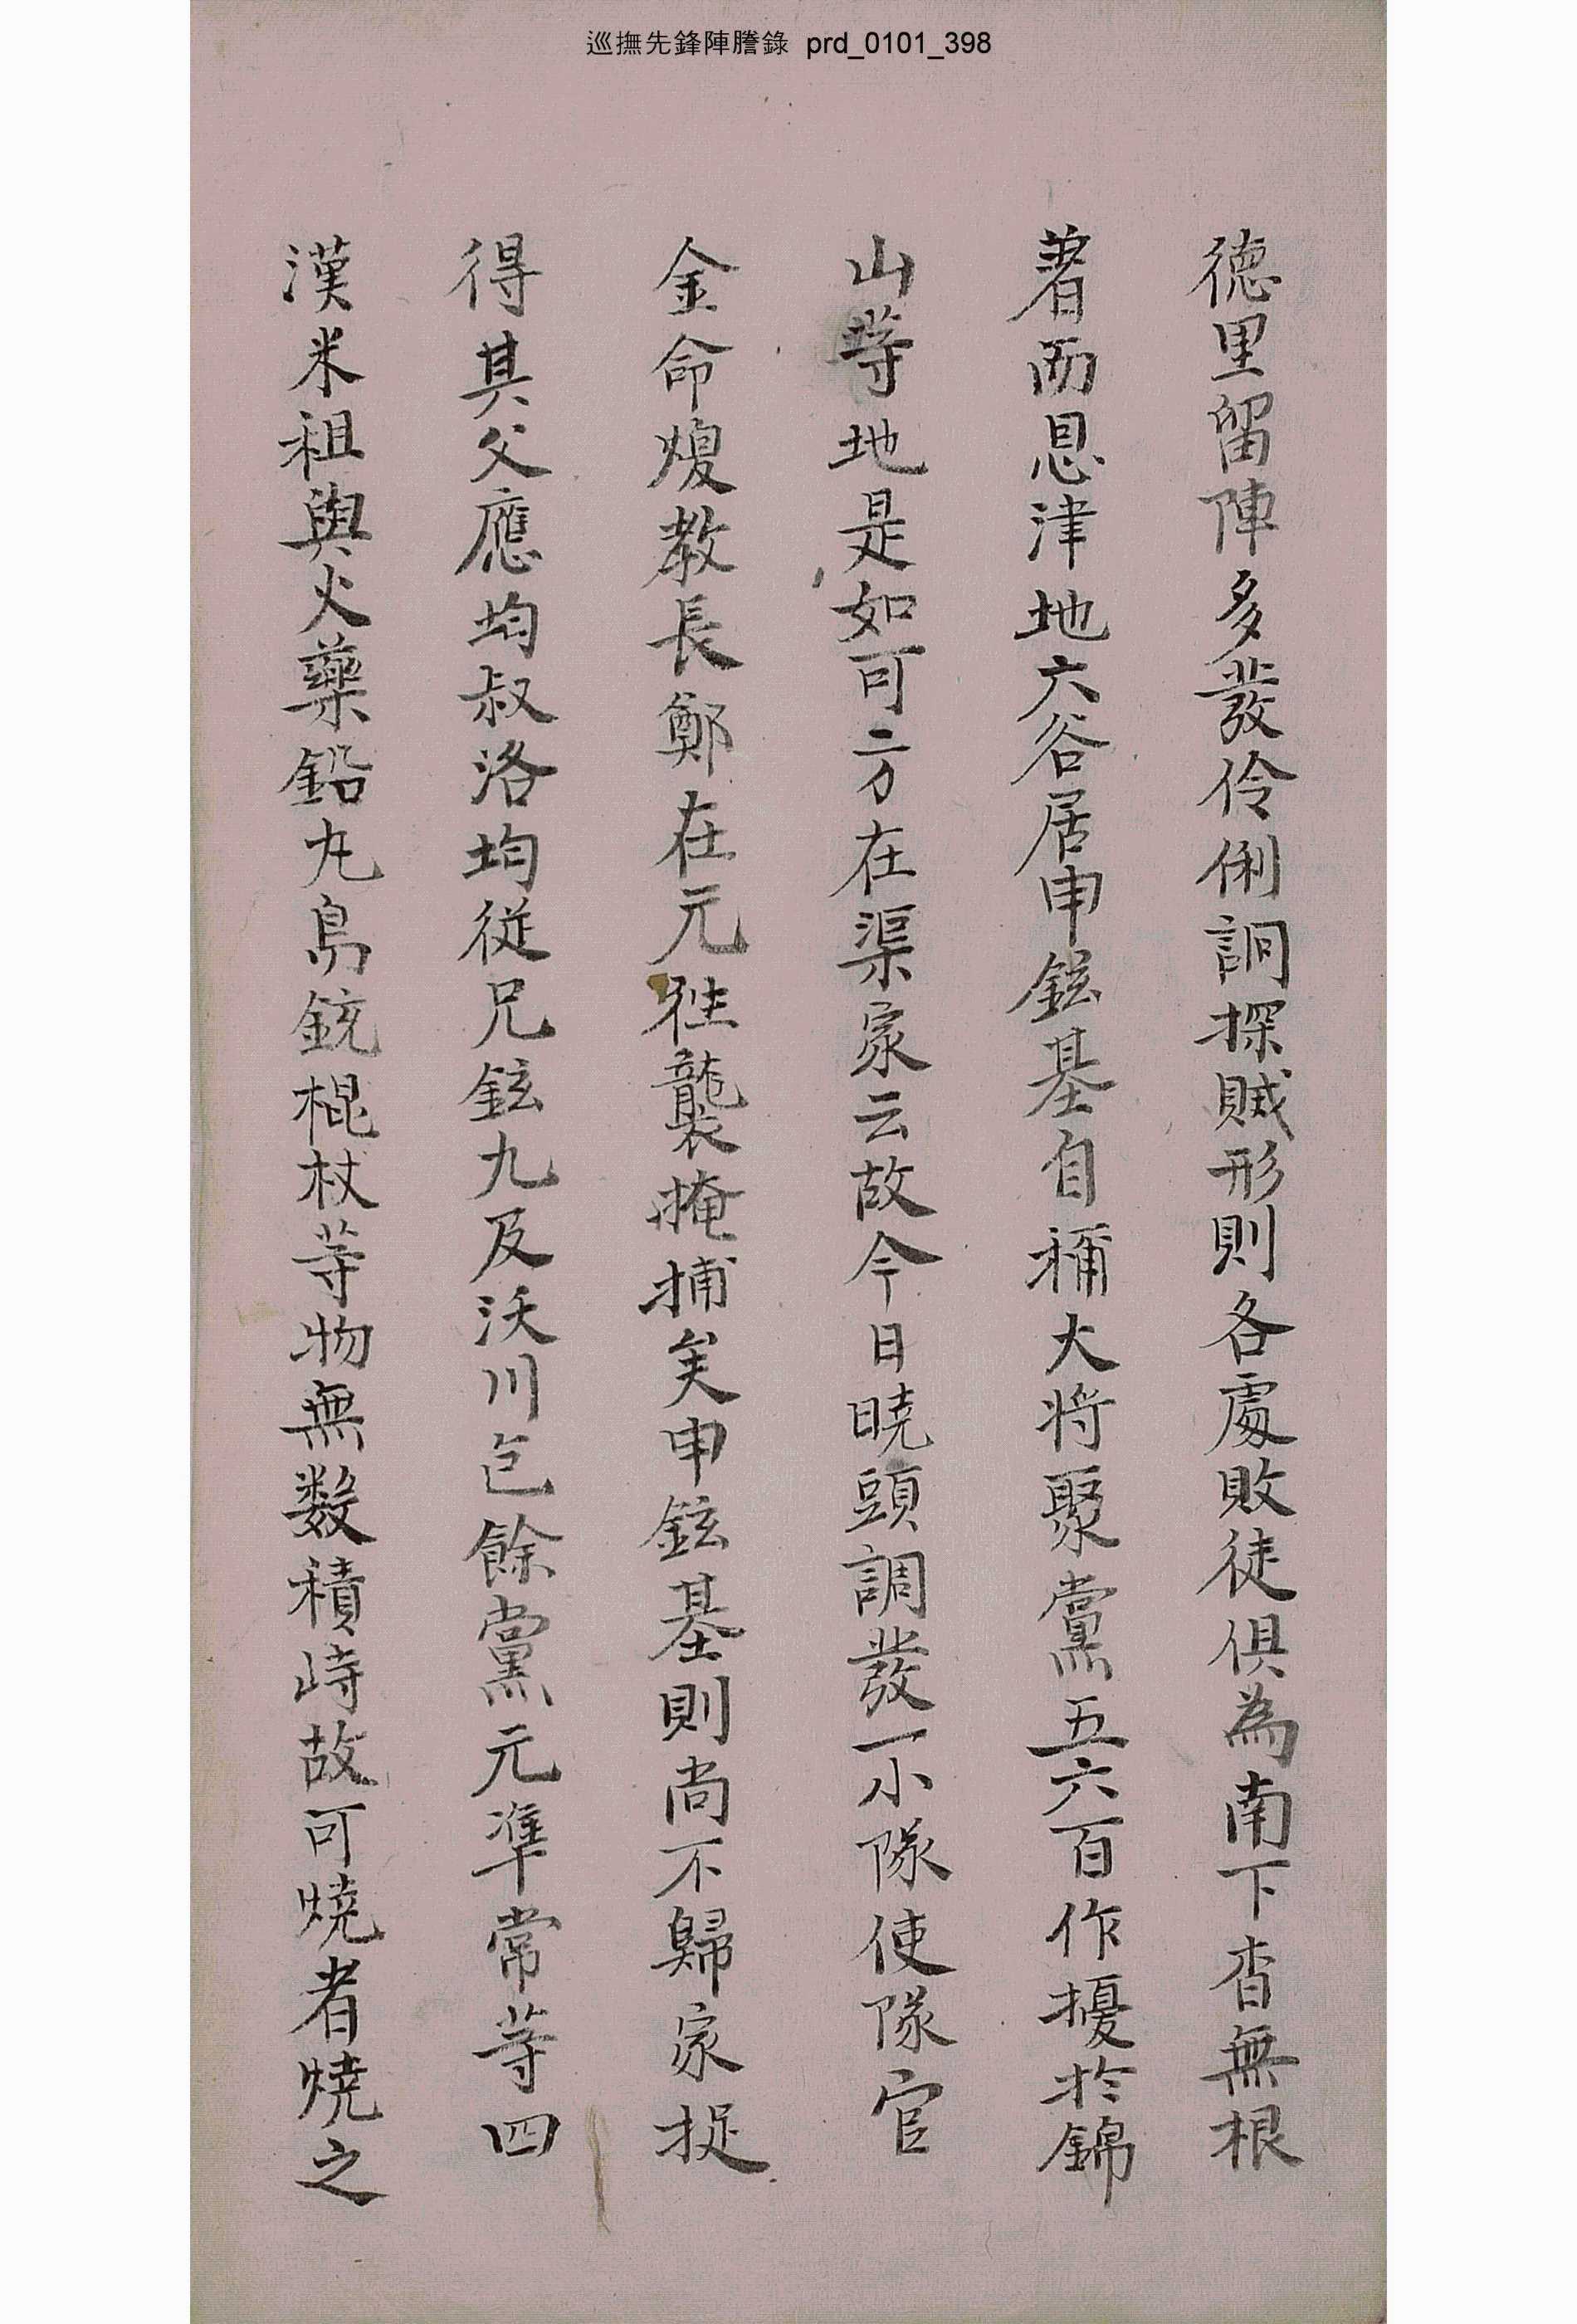 巡撫先鋒陣謄錄 prd_0101_398
德里留陣多發伶俐詗探賊形則各處敗徒俱為南下杳無根
著而恩津地六谷居申鉉基自稱大將聚黨五六百作擾於錦
山等地是如可二方在渠家云故今日曉頭調發一小隊使隊官
金命煥教長鄭在元往襲掩捕矣申鉉基則尚不歸家捉
得其父應均叔洛均從兄鉉九及沃川包餘黨元準常等四
漢米租與火藥鉛丸鳥銃棍杖等物無数積峙故可燒者燒之